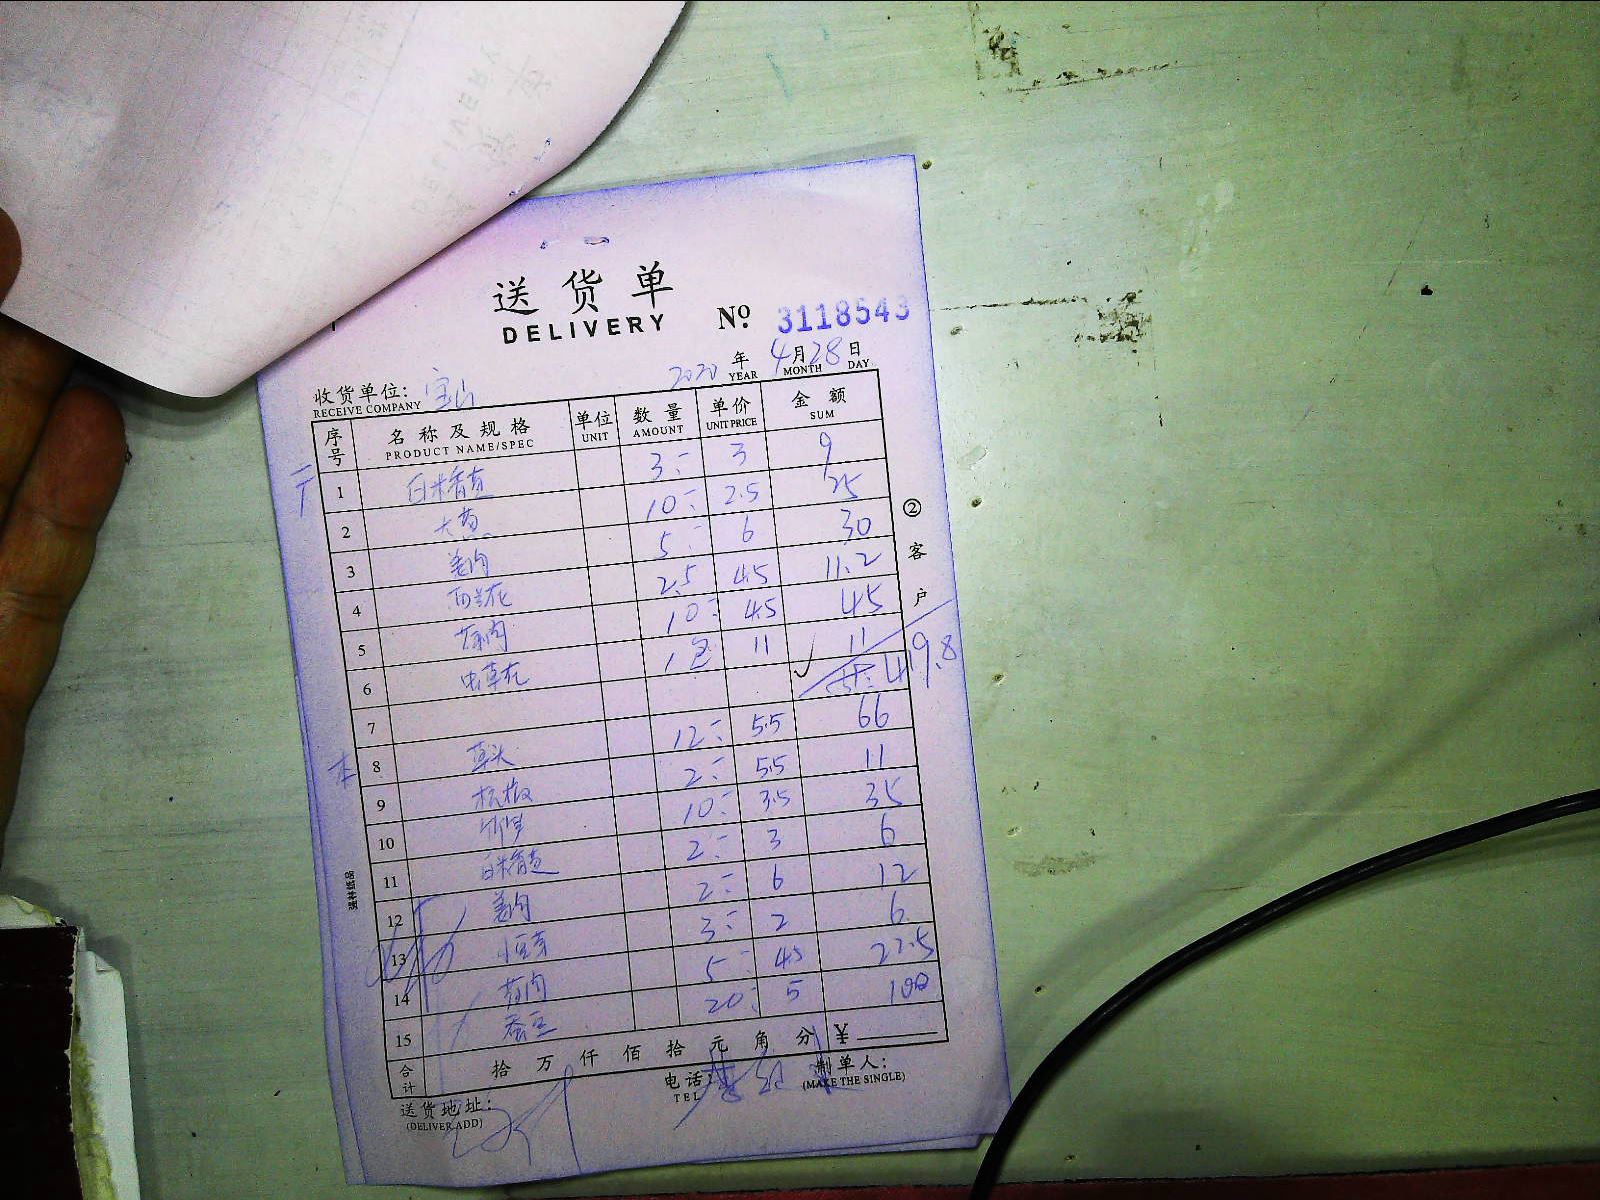 送货单
DELIVERY
No. 3118543
2020 年 YEAR 4 月 MONTH 28 日 DAY
收货单位: 宝山
RECEIVE COMPANY
序号 名称及规格 单位 数量 单价 金额
PRODUCT NAME/SPEC UNIT AMOUNT UNIT PRICE SUM
1 白米 3 3 9
2 大 10 2.5 25
3 姜肉 5 6 30
4 西兰花 2.5 4.5 11.2
5 10 4.5 45
6 虫草花 1包 11 11
7 49.8
8 草头 12 5.5 66
9 杭椒 2 5.5 11
10 10 3.5 35
11 白米 2 3 6
12 姜肉 2 6 12
13 小豆芽 3 2 6
14 5 4.5 22.5
15 蚕豆 20 5 100
合计 拾 万 仟 佰 拾 元 角 分 ¥
② 客户
送货地址:
(DELIVER ADD)
电话:
TEL
制单人:
(MAKE THE SINGLE)